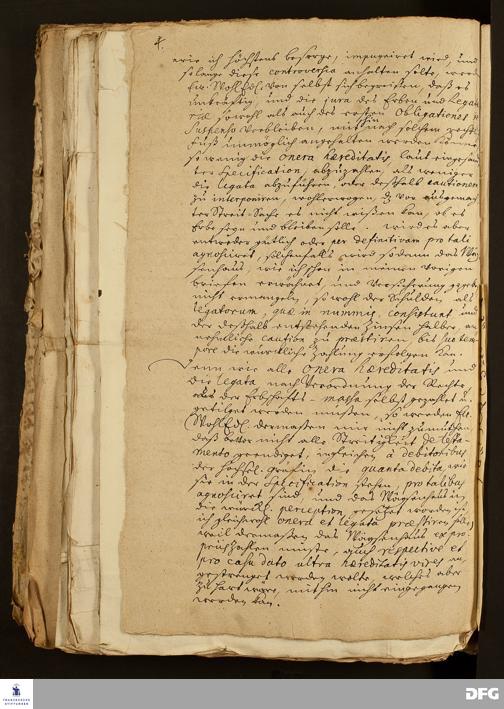 4.
wie ich höchstens besorge, impugniret wird, und
so lange diese controversia anhalten solte, werden
Ew. WohlEdl. von selbst sich begreiffen, daß es
unkräftig, und die jura des Erben und Lega-
sowohl als auch des Obligationes in
suspenso verbleiben, mithin nach solchem
Fuß unmöglich angehalten werden könne,
so wenig die onera hæreditatis, laut eingesan-
ter Specification, abzuzahlen, als weniger
die legata abzuführen, oder deßhalb cautionen
zu interponiren, wohlerwogen, vor ausgemach-
ter Streit-Sache es nicht wißen kan, ob es
Erbe seyn und bleiben solle. wird es aber
entweder gütlich oder per definitivam pro tali
agnosciret, solchenfalls wird sodann das Way-
senhaus, wie ich schon in meinen vorigen
briefen erwehnet, und Versicherung gegeben
nicht ermangeln, sowohl der Schulden, als
legatorum, quæ in nummis consistunt und
der deßhalb entstehenden Zinsen halber, an-
nehmliche caution zu præstiren, bis suo tem-
pore die würckliche Zahlung erfolgen kan.
Denn wie alle onera hæreditatis und
die legata nach Verordnung der Rechte,
aus der Erbschafts-massa selbst gezahlet u.
getilget werden müssen, so werden Ew.
WohlEdl. dermassen mir nicht zumuthen
daß bevor nicht alle Streitigkeit de testa-
mento geendiget, ingleichen à debitoribus
der Hochsel. Gräfin die quanta debita, wie
sie in der Specification stehen, pro talibus
agnosciret sind, und das Waysenhaus in
die würckl. perception gesetzet worden ist,
ich gleichwohl onera et legata præstiren solle,
weil dermassen das Waysenhaus ex pro-
priis zahlen müste, auch respective et
pro casu dato ultra hæreditatis vires an-
gestrenget werden wolte, welches aber
zu hart wäre, mithin nicht eingegangen
werden kan.
FRANCKESCHE
STIFTUNGEN
DFG